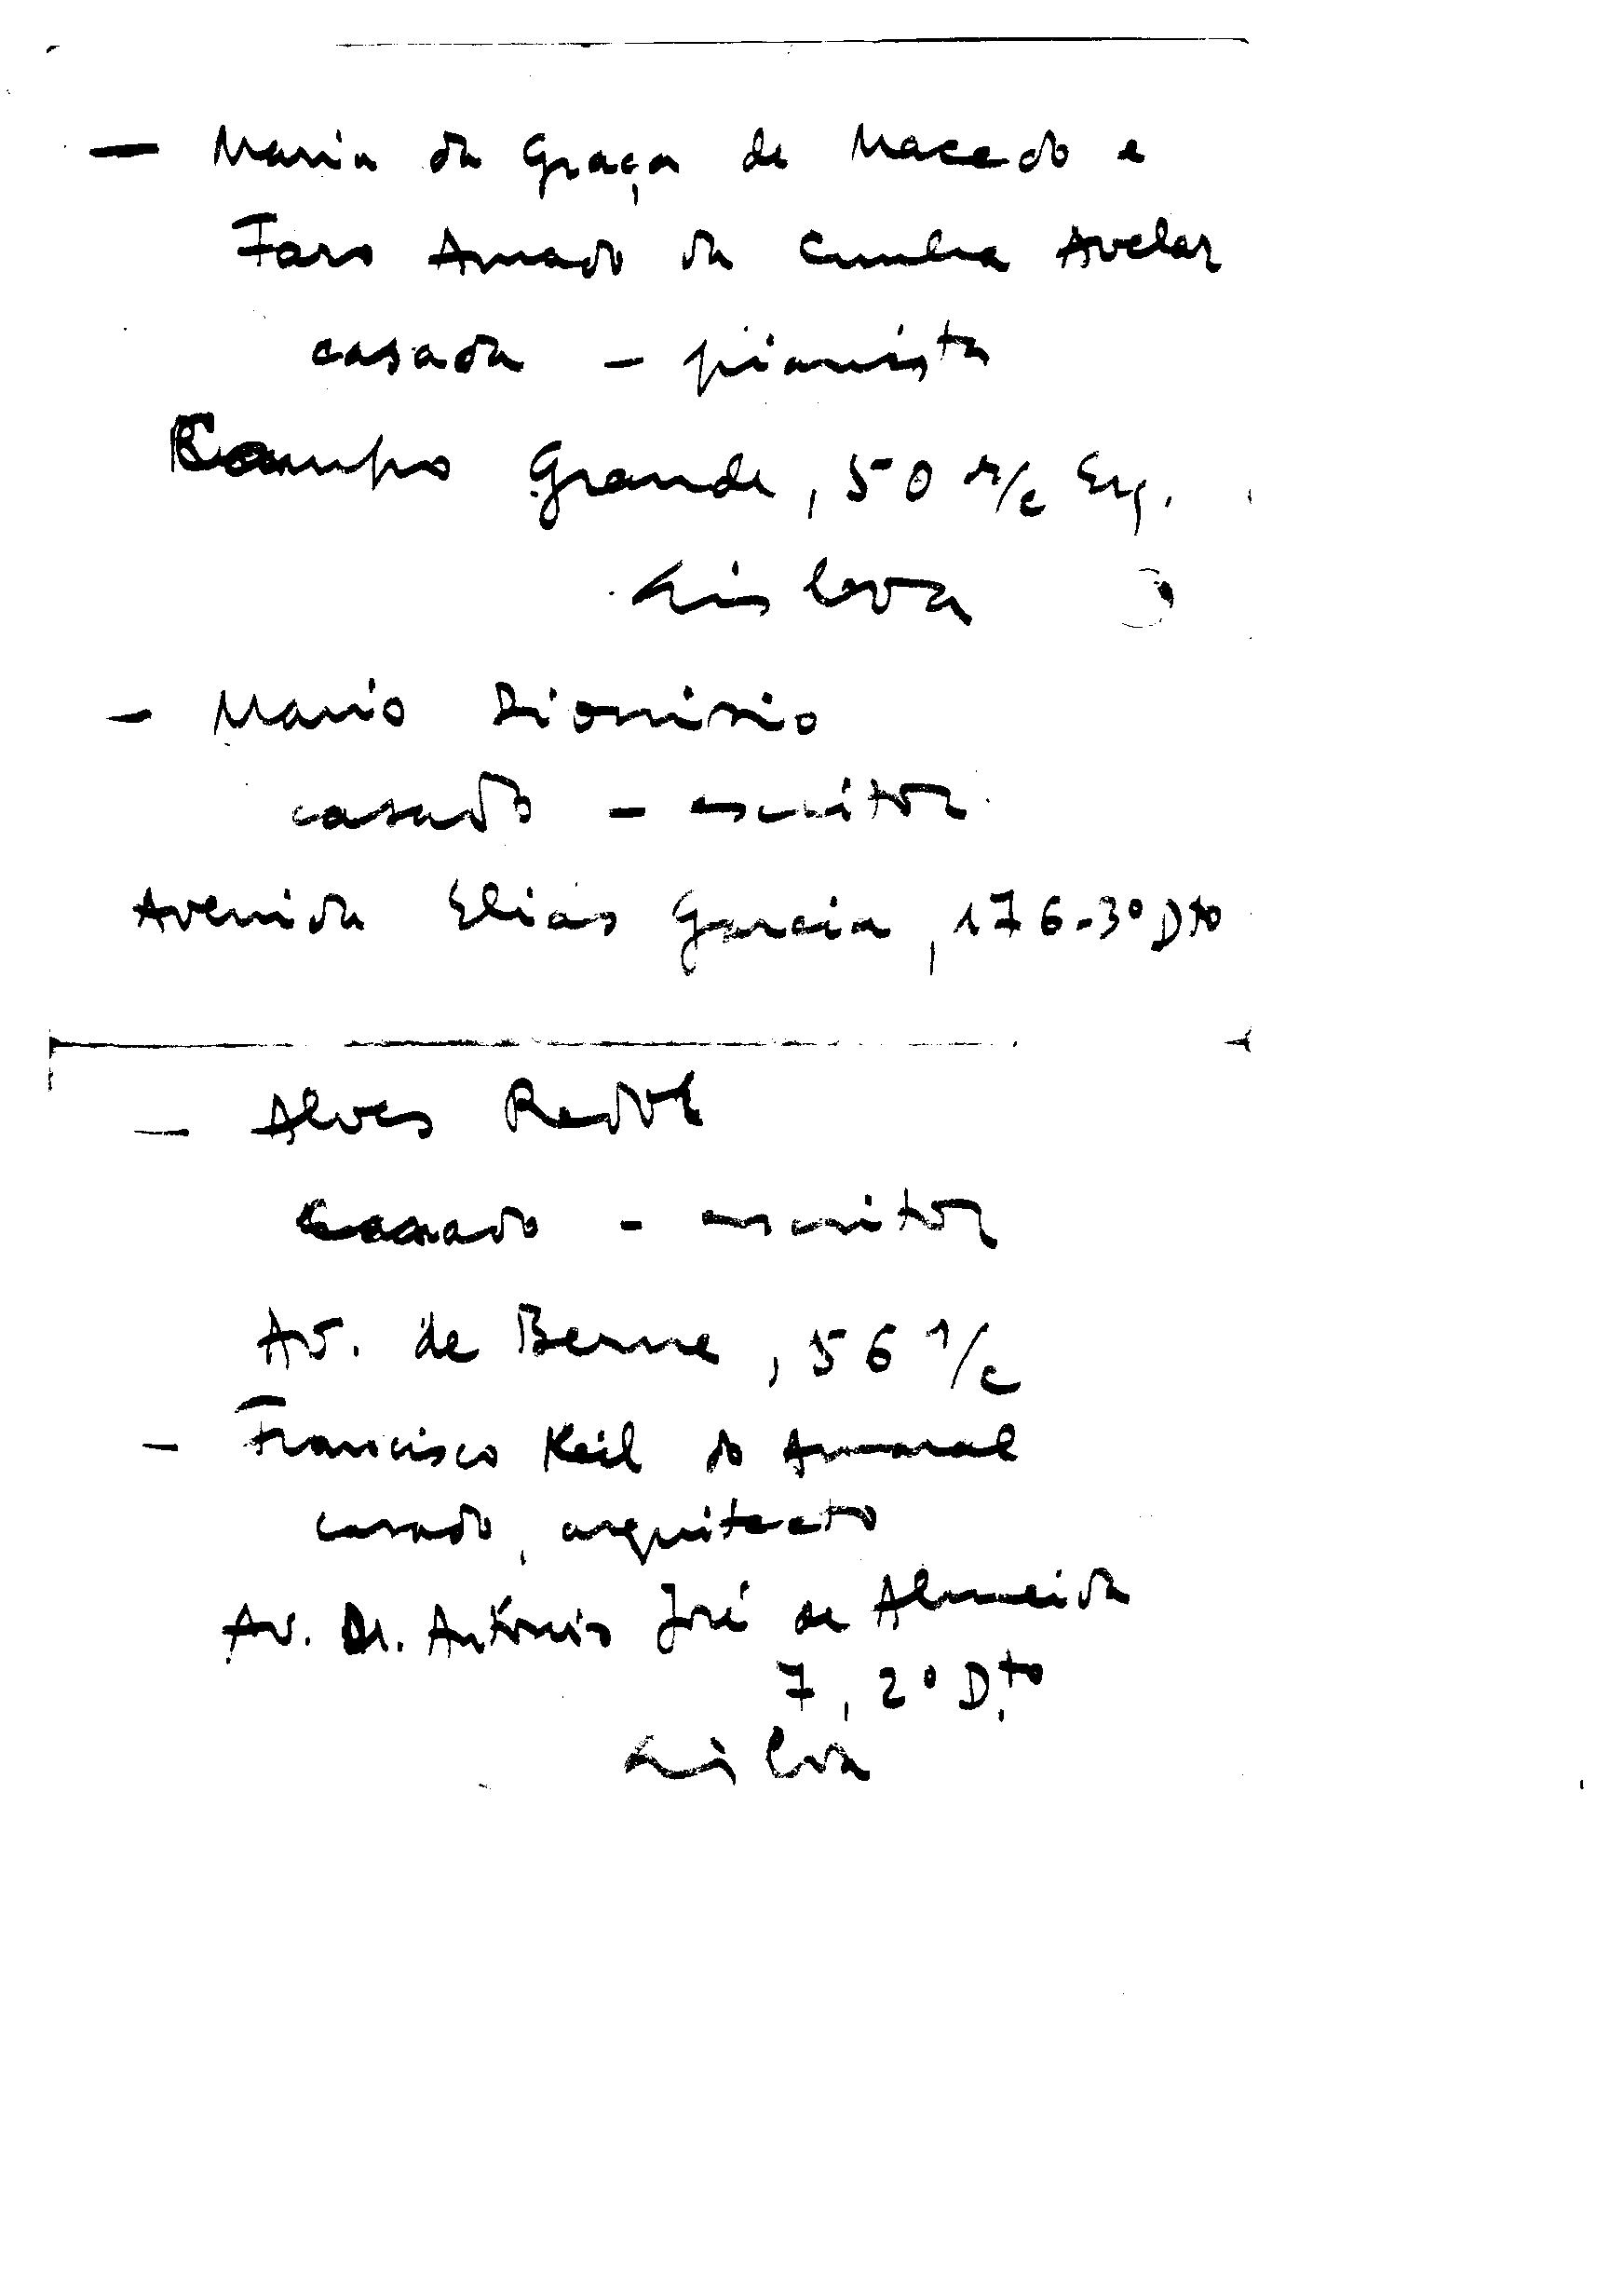 — Maria da Graça de Macedo e
Faro Amado da Cunha Avelar
casada – pianista
Campo Grande, 50 r/c Esq.
Lisboa
– Mario Dionisio
casado – escritor
Avenida Elias Garcia, 176-3º Dto
— Alves Redol
Casado - escritor
Av. de Berne, 56 r/c
– Francisco Keil do Amaral
casado, arquitecto
Av. Dr. António José de Almeida
7, 2º D.to
Lisboa